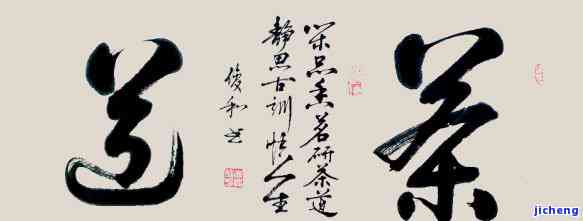 茶
闲品香茗研茶道
静思古训悟人生
俊和书
道
jicheng